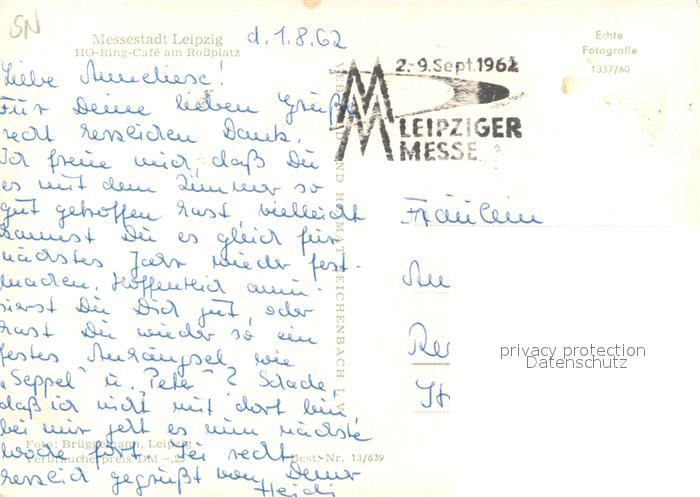 SN
Messestadt Leipzig
HO-Ring-Café am Roßplatz
d. 1.8.62
Echte
Fotografie
1337/60
2.-9. Sept. 1962
LEIPZIGER
MESSE
Liebe Anneliese!
Für Deine lieben Grüße
recht herzlichen Dank.
Ich freue mich, daß Du
es mit dem Zimmer so
gut getroffen hast, vielleicht
kannst Du es gleich für
nächstes Jahr wieder fest-
machen. Hoffentlich amü-
sierst Du Dich gut, oder
hast Du wieder so ein
festes Anhängsel wie
"Seppel" u. "Peter"? Schade,
daß ich nicht mit dort bin,
bei mir geht es nun nächste
Woche fort. Sei recht
herzlich gegrüßt von Deiner
Heidi
VER UND HEIMAT REICHENBACH I. V.
Fräulein
An
Re
St
privacy protection
Datenschutz
Foto: Brüggemann, Leipzig
Verbraucherpreis DM -,25
Best.-Nr. 13/639